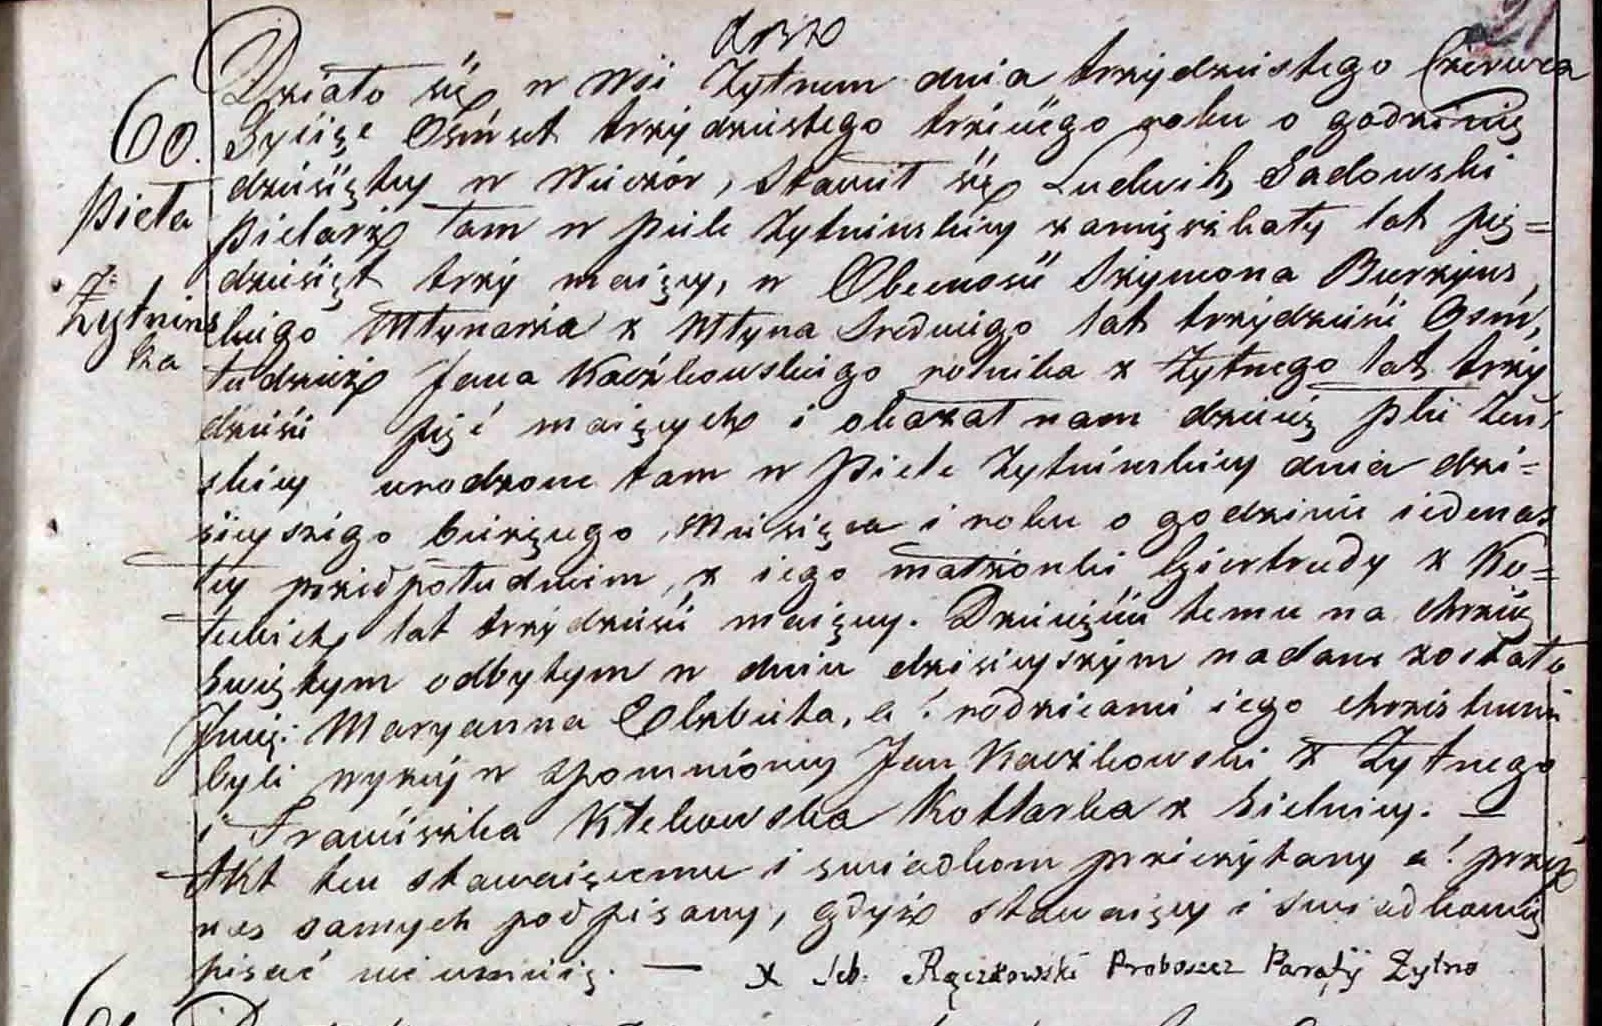 60.
Piła
Żytnińs
ka
Działo się w Wsi Zytnem dnia trzydziestego Czerwca
Tysiąc Osmset trzydziestego trzeciego roku o godzinie
dziesiątey w Wieczór, Stawił się Ludwik Sadowski
Pielarz tam w Pile Zytninskiey zamięszkały lat pię=
dziesiąt trzy maiący, w Obecnosci Szymona Burzyns,
kiego Młynarza z Młyna Sredniego lat trzydzieści Osm,
tudzież Jana Kaczkowskiego rolnika z Zytnego lat trzy
dzieści pięć maiących i okazał nam dziecię płci Zeń
skiey urodzone tam w Pile Zytninskiey dnia dzi=
sieyszego bieżącego Miesiąca i roku o godzinie iedenas
tey przed południem, z iego małżonki Giertrudy z Ko=
tubich lat trzydzieści maiącey. Dziecięciu temu na chrzcie
Swiętym odbytym w dniu dzisieyszym nadane zostało
Jmię: Maryanna Elzbieta, a! rodzicami iego chrzestnemi
byli wyzey w spomniony Jan Kaczkowski z Zytnego
i Franciszka Kotlarka z Sielnicy. —
Akt ten stawaiącemu i swiadkom przeczytany a! przez
nas samych podpisany, gdyż stawaiący i swiadkowie
pisać nie umieią. — X Seb. Rączkowski Proboszcz Parafij Zytno